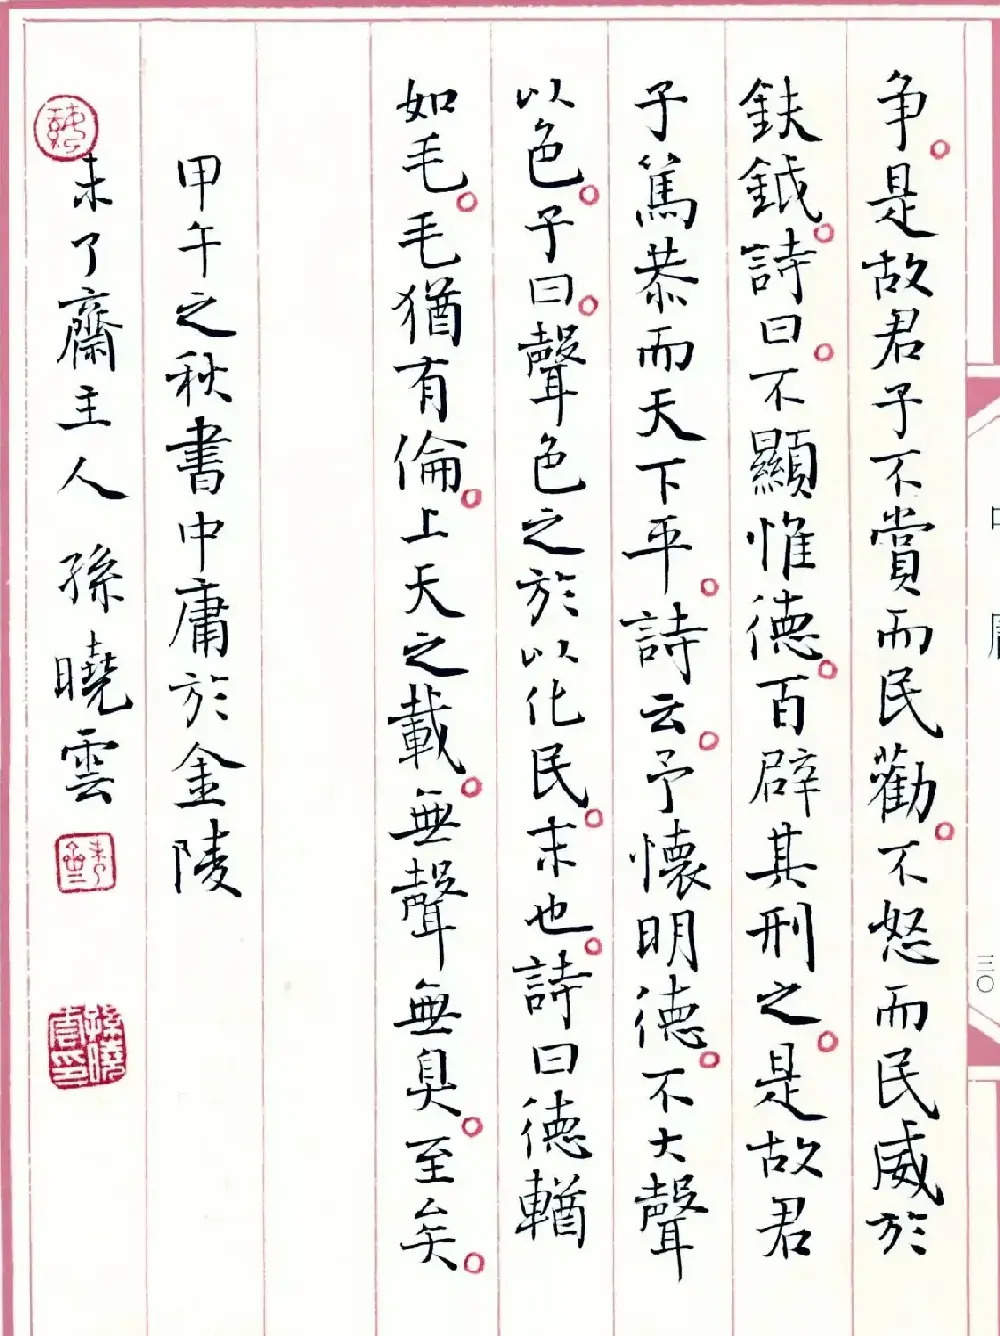 三〇
争。是故君子不賞而民勸。不怒而民威於
鈇鉞。詩曰。不顯惟德。百辟其刑之。是故君
子篤恭而天下平。詩云。予懷明德。不大聲
以色。子曰。聲色之於以化民。末也。詩曰德輶
如毛。毛猶有倫。上天之載。無聲無臭。至矣。
甲午之秋書中庸於金陵
未了齋主人 孫曉雲
孫曉雲印